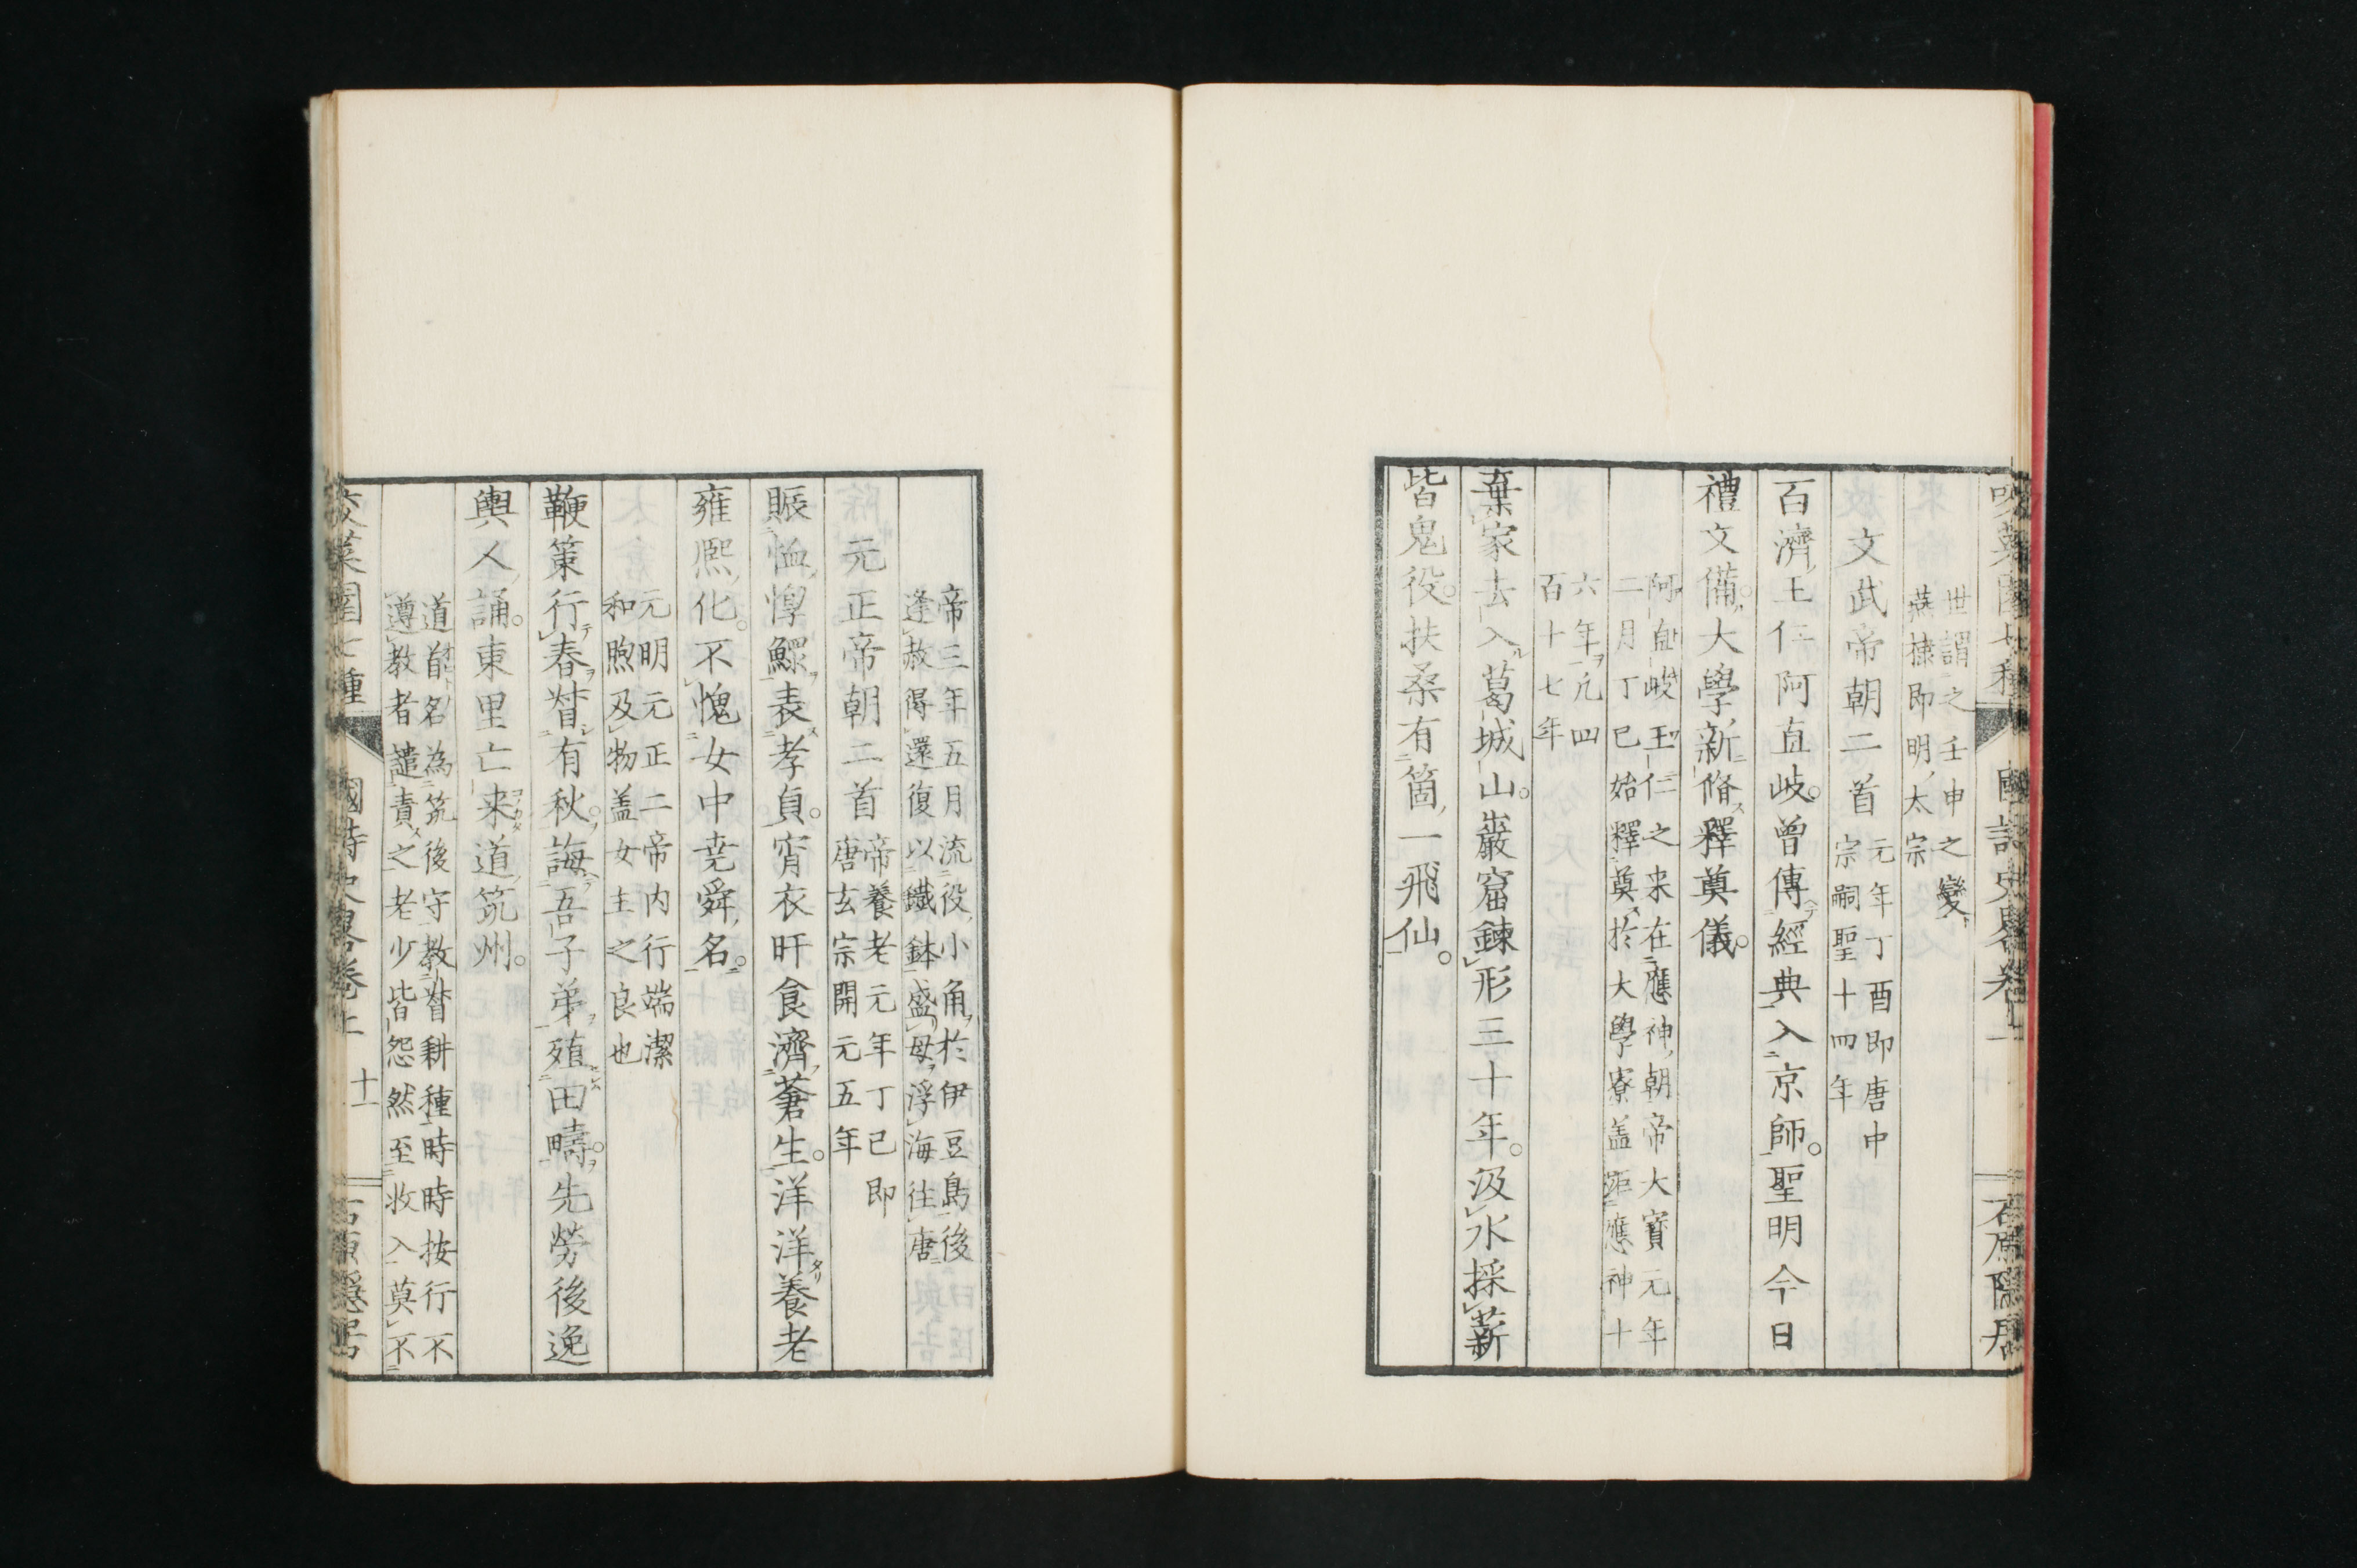 世謂之壬申之變
燕棣即明太宗
文武帝朝二首
元年丁酉即唐中
宗嗣聖十四年
百濟王仁阿直岐曾傳經典入京師聖明今日
禮文備大學新脩釋奠儀
阿直岐王仁之来在應神朝帝大寳元年
二月丁巳始釋奠於大學寮盖距應神十
六年凡四
百十七年
棄家去入葛城山巖窟鍊形三十年汲水採薪
皆鬼役扶桑有箇一飛仙
帝三年五月流役小角於伊豆島後
逢赦得還復以鐵鉢盛母浮海往唐
元正帝朝二首
帝養老元年丁巳即
唐玄宗開元五年
賑恤惸鰥表孝貞宵衣旰食濟蒼生洋洋養老
雍熙化不愧女中堯舜名
元明元正二帝内行端潔
和煦及物盖女主之良也
鞭策行春督有秋誨吾子弟殖田疇先勞後逸
輿人誦東里亡来道筑州
道首名為筑後守教督耕種時時按行不
遵教者譴責之老少皆怨然至收入莫不
國詩史畧卷上
十一